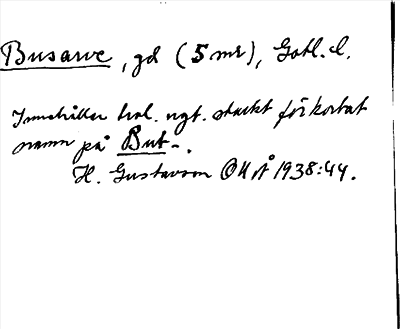 Busarve, gd (5 mr), Gotl. l.
Innehåller trol. ngt. starkt förkortat
namn på But-.
H. Gustavson OUÅ 1938:44.